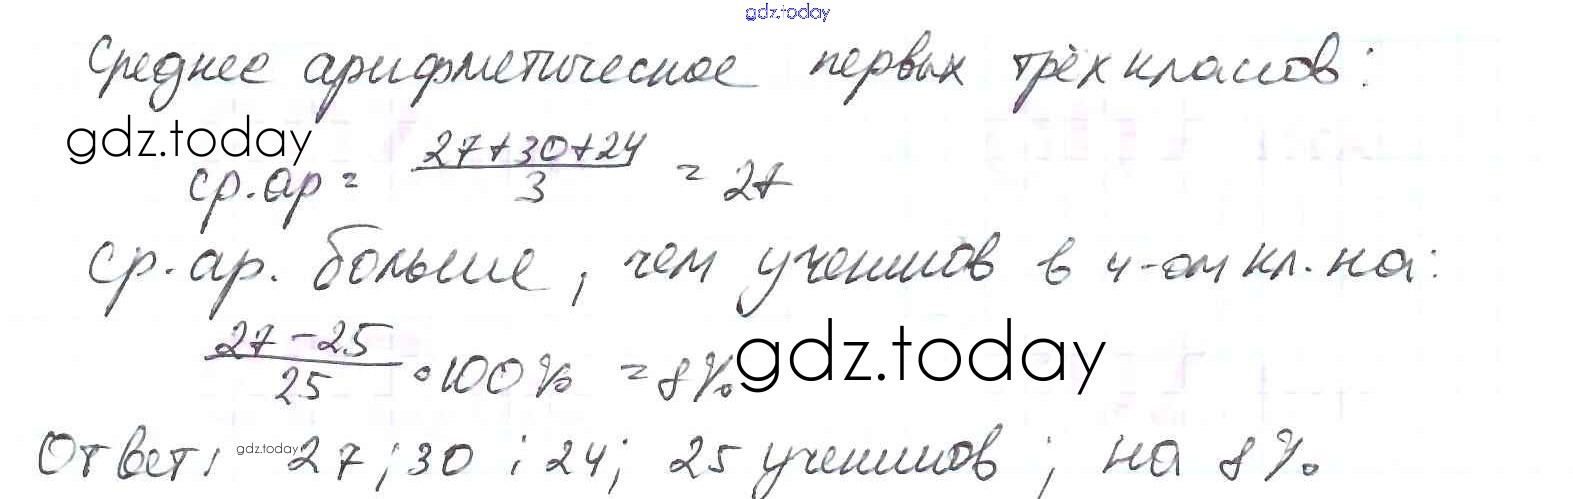 gdz.today
Среднее арифметическое первых трёх классов:
gdz.today
ср.ар = 27+30+24 / 3 = 27
ср.ар. больше, чем учеников в 4-ом кл. на:
27-25 / 25 • 100% = 8%
gdz.today
Ответ: 27; 30; 24; 25 учеников; на 8%
gdz.today